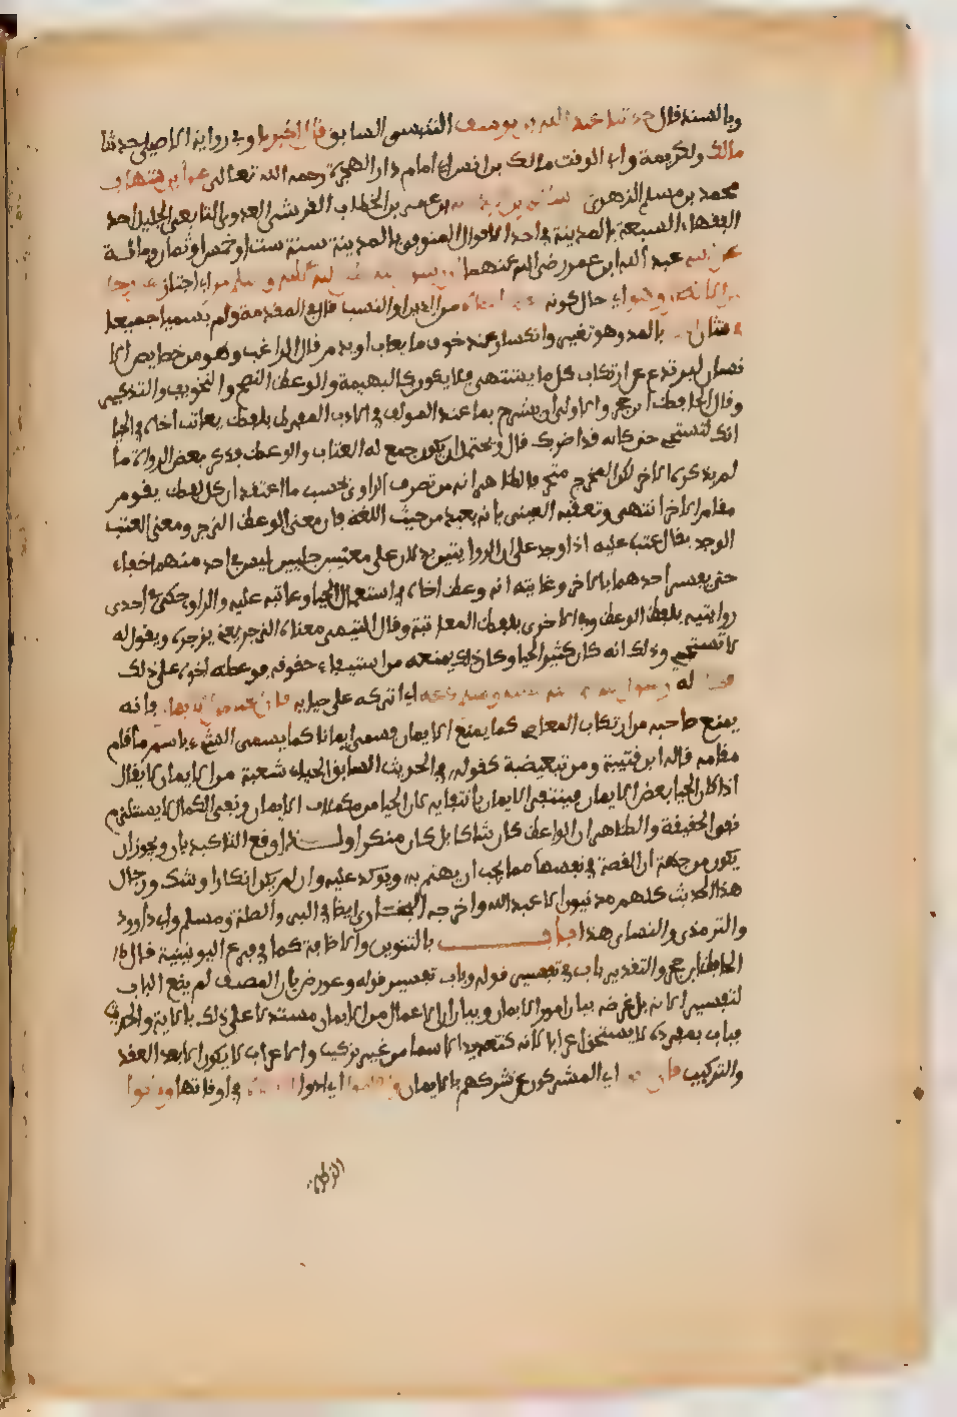 وبالسند قال حدثنا عبد الله بن يوسف التنيسي السابق قال اخبرنا وفي رواية الاصيلي حدثنا
مالك ولكريمة وابي الوقت مالك بن انس اي امام دار الهجرة رحمه الله تعالى عن ابن شهاب
محمد بن مسلم الزهري عن سالم بن عبد الله بن عمر بن الخطاب القرشي العدوي التابعي الجليل احد
الفقهاء السبعة بالمدينة في احد الاقوال المتوفى بالمدينة سنة ست او خمس او ثمان ومائة
عن ابيه عبد الله ابن عمر رضي الله عنهما ان رسول الله صلى الله عليه وسلم مر اي اجتاز على رجل
من الانصار وهو اي حال كونه يعظ اخاه من الدين او النسب قال في المقدمة ولم يسميا جميعا
في شان بالمد وهو تغير وانكسار عند خوف ما يعاب او يذم قال الراغب وهو من خصايص الا
نسان ليرتدع عن ارتكاب كل ما يشتهي فلا يكون كالبهيمة والوعظ النصح والتخويف والتذكير
وقال الحافظ ابن حجر والاولى ان يشرح بما عند المولف في الادب المفرد بلفظ يعاتب اخاه في الحيا
انك لتستحي حتى كانه قد اضر بك قال ويحتمل ان يكون جمع له العتاب والوعظ فذكر بعض الرواة ما
لم يذكره الاخر لكن المخرج متحد فالظاهر انه من تصرف الراوي بحسب ما اعتقد ان كل لفظ يقوم
مقام الاخر انتهى وتعقبه العيني بانه بعيد من حيث اللغة فان معنى الوعظ الزجر ومعنى العتب
الوجد يقال عتب عليه اذا وجد على ان الروايتين تدلان على معنيين جليين ليس في احد منهما خفاء
حتى يفسر احدهما بالاخر وغايته انه وعظ اخاه في استعمال الحيا وعاتبه عليه والراوي حكى في احدى
روايتيه بلفظ الوعظ وفي الاخرى بلفظ المعاتبة وقال التيمي معناه الزجر يعني يزجره ويقول له
لا تستحي وذلك انه كان كثير الحيا وكان ذلك يمنعه من استيفاء حقوقه فوعظه اخوه على ذلك
فقال له رسول الله صلى الله عليه وسلم دعه اي اتركه على حيايه فان الحياء من الايمان فانه
يمنع صاحبه من ارتكاب المعاصي كما يمنع الايمان فسمي ايمانا كما يسمى الشيء باسم ما قام
مقامه قاله ابن قتيبة ومن تبعيضية كقوله في الحديث السابق الحياء شعبة من الايمان لا يقال
اذا كان الحيا بعض الايمان فينتفي الايمان بانتفايه لان الحيا من مكملات الايمان ونفي الكمال لا يستلزم
نفي الحقيقة والظاهر ان الواعظ كان شاكا بل كان منكرا ولذا وقع التاكيد بان ويجوز ان
يكون من جهة ان القصة في نفسها مما يجب ان يهتم به ويوكد عليه وان لم يكن انكار او شك ورجال
هذا الحديث كلهم مدنيون الا عبد الله واخرجه البخاري ايضا في البر والصلة ومسلم وابي داوود
والترمذي والنساى هذا باب بالتنوين والاضافة كما في فرع اليونينية قال
الحافظ ابن حجر والتقدير باب في تفسير قوله وباب تفسير قوله وعورض بان المصنف لم يضع الباب
لتفسير الاية بل غرضه بيان امور الايمان وبيان ان الاعمال من الايمان مستدلا على ذلك بالاية والحديث
فباب بمفرده لا يستحق اعرابا لانه كتعديد الاسما من غير تركيب والاعراب لا يكون الا بعد العقد
والتركيب فان تابوا اي المشركون عن شركهم بالايمان واقاموا اي ادوا الصلاة في اوقاتها واتوا
الزكاة